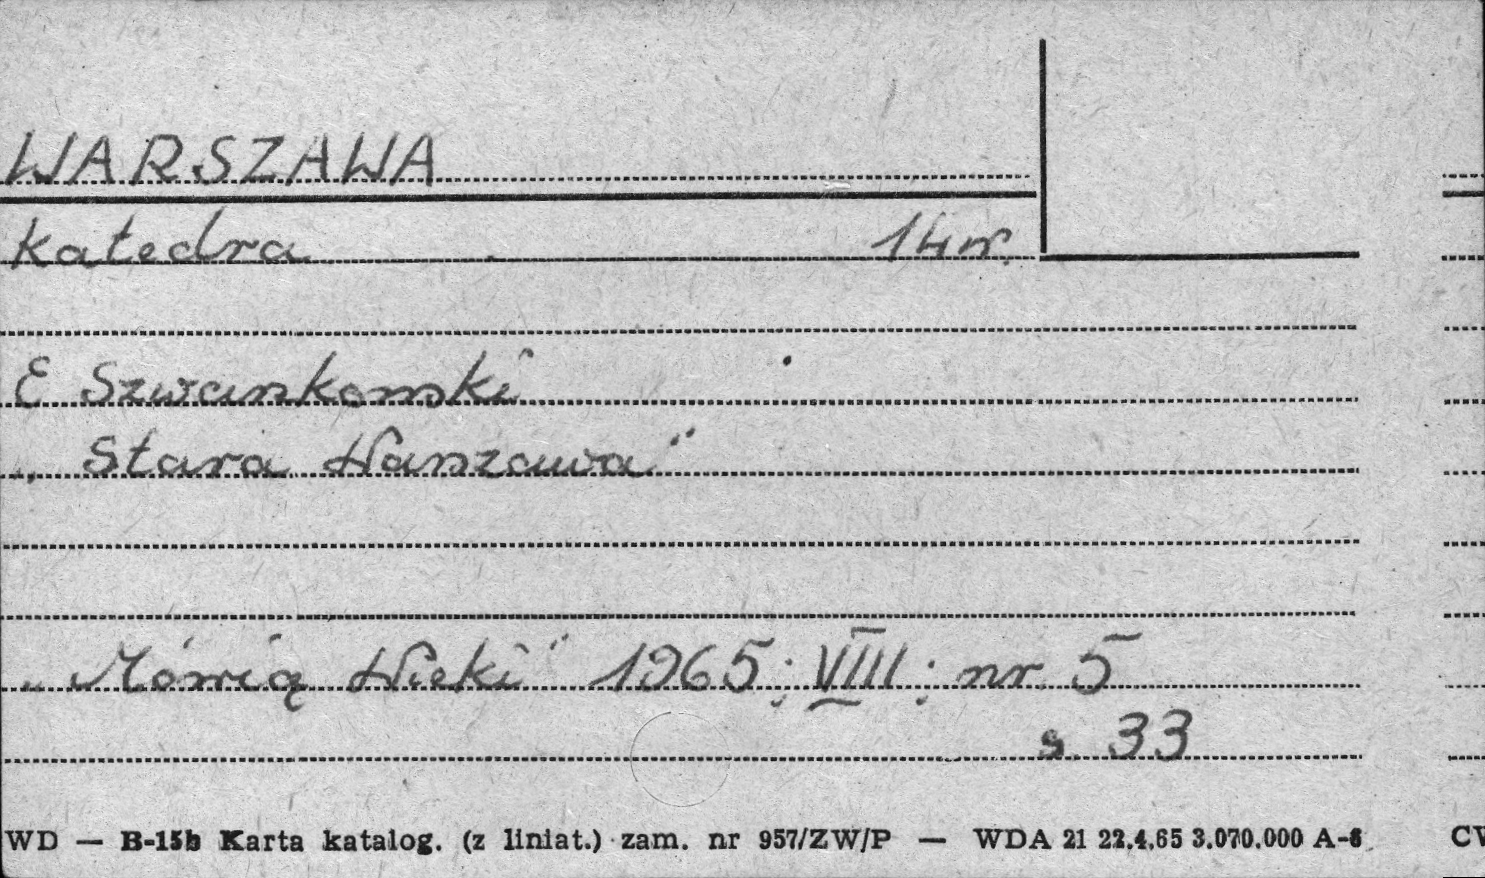 WARSZAWA
Katedra 14 w.
E Szwankowski
„Stara Warszawa"
„Mówią Wieki" 1965; VIII; nr. 5
s. 33
WD — B-15b Karta katalog. (z liniat.) zam. nr 957/ZW/P — WDA 21 22.4.65 3.070.000 A-6